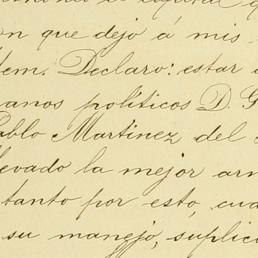 n que dejo á mis
tem. Declaro: estar
anos políticos D. G
Pablo Martinez del
llevado la mejor ar
tanto por esto, cua
su manejo, suplic